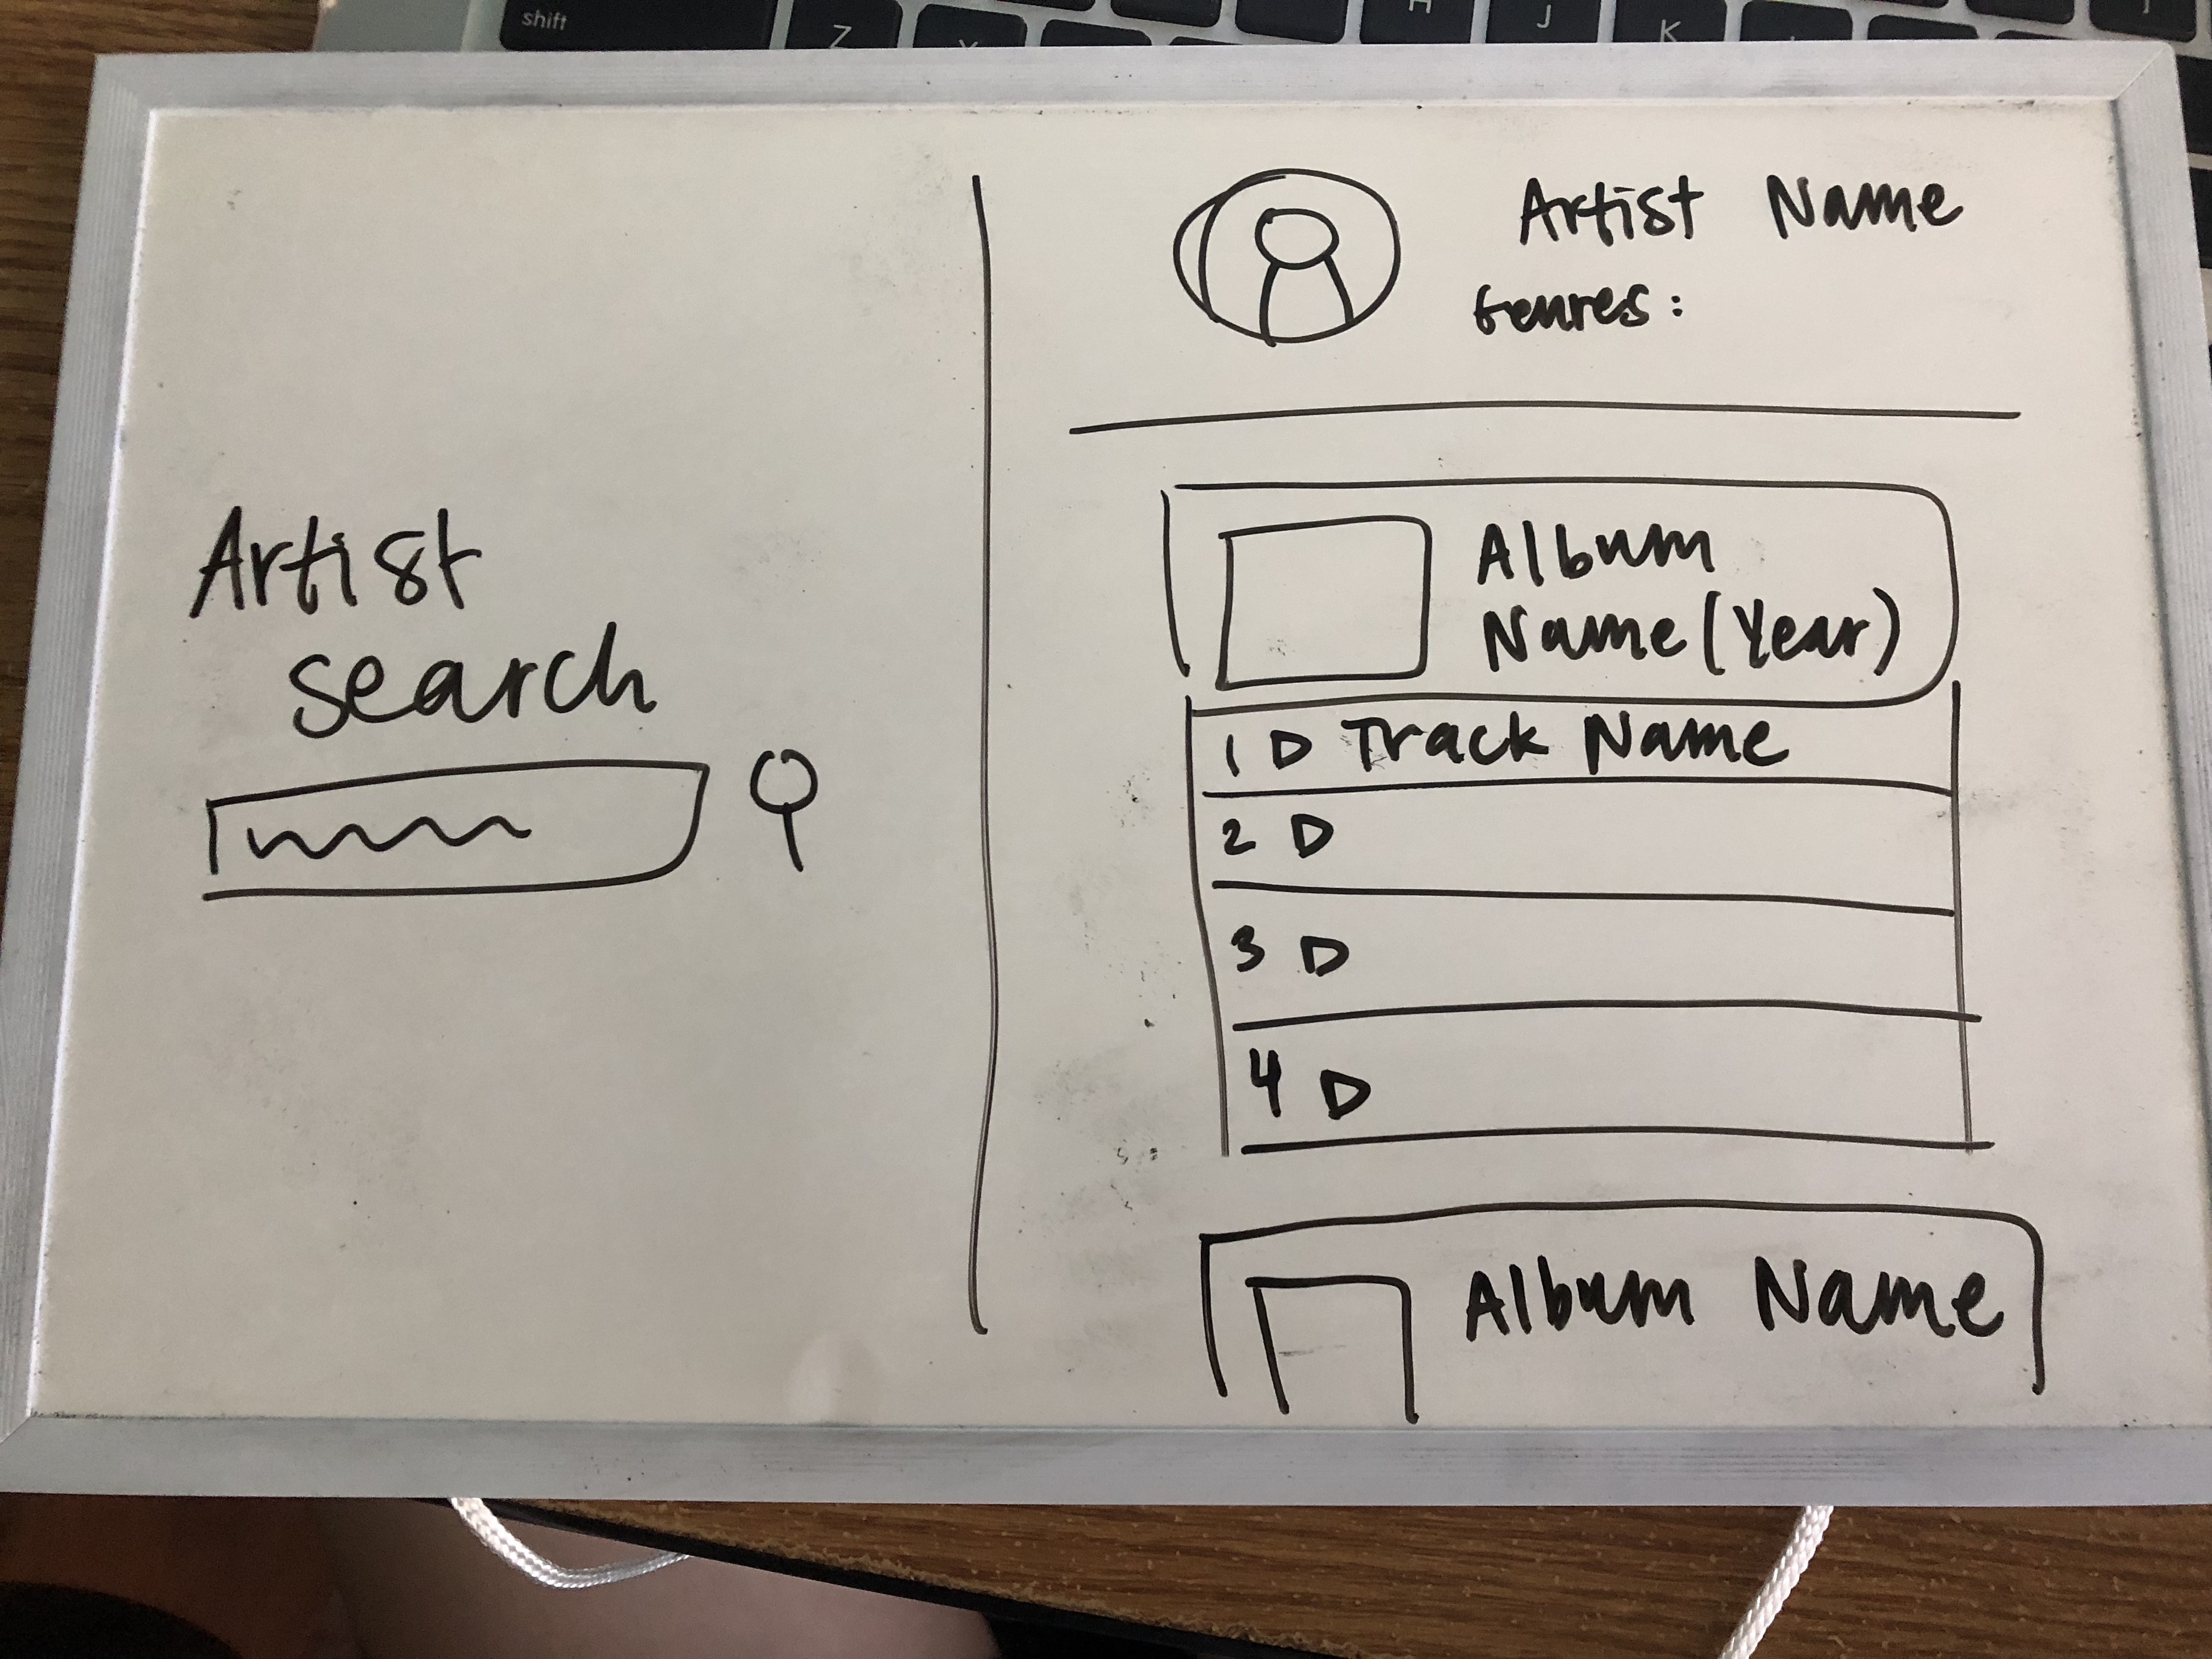 shift
Z
H
J
K
Artist
search
Artist Name
Genres:
Album
Name (Year)
1 Track Name
2
3
4
Album Name